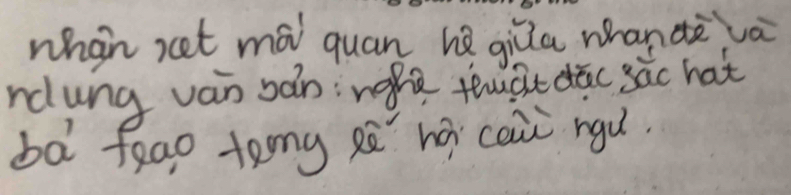 nhận xét mối quan hệ giữa nhan đề và
ndung văn bản: nghệ thuật đặc sắc hát
bả trạo trong lễ hội cầu ngư.